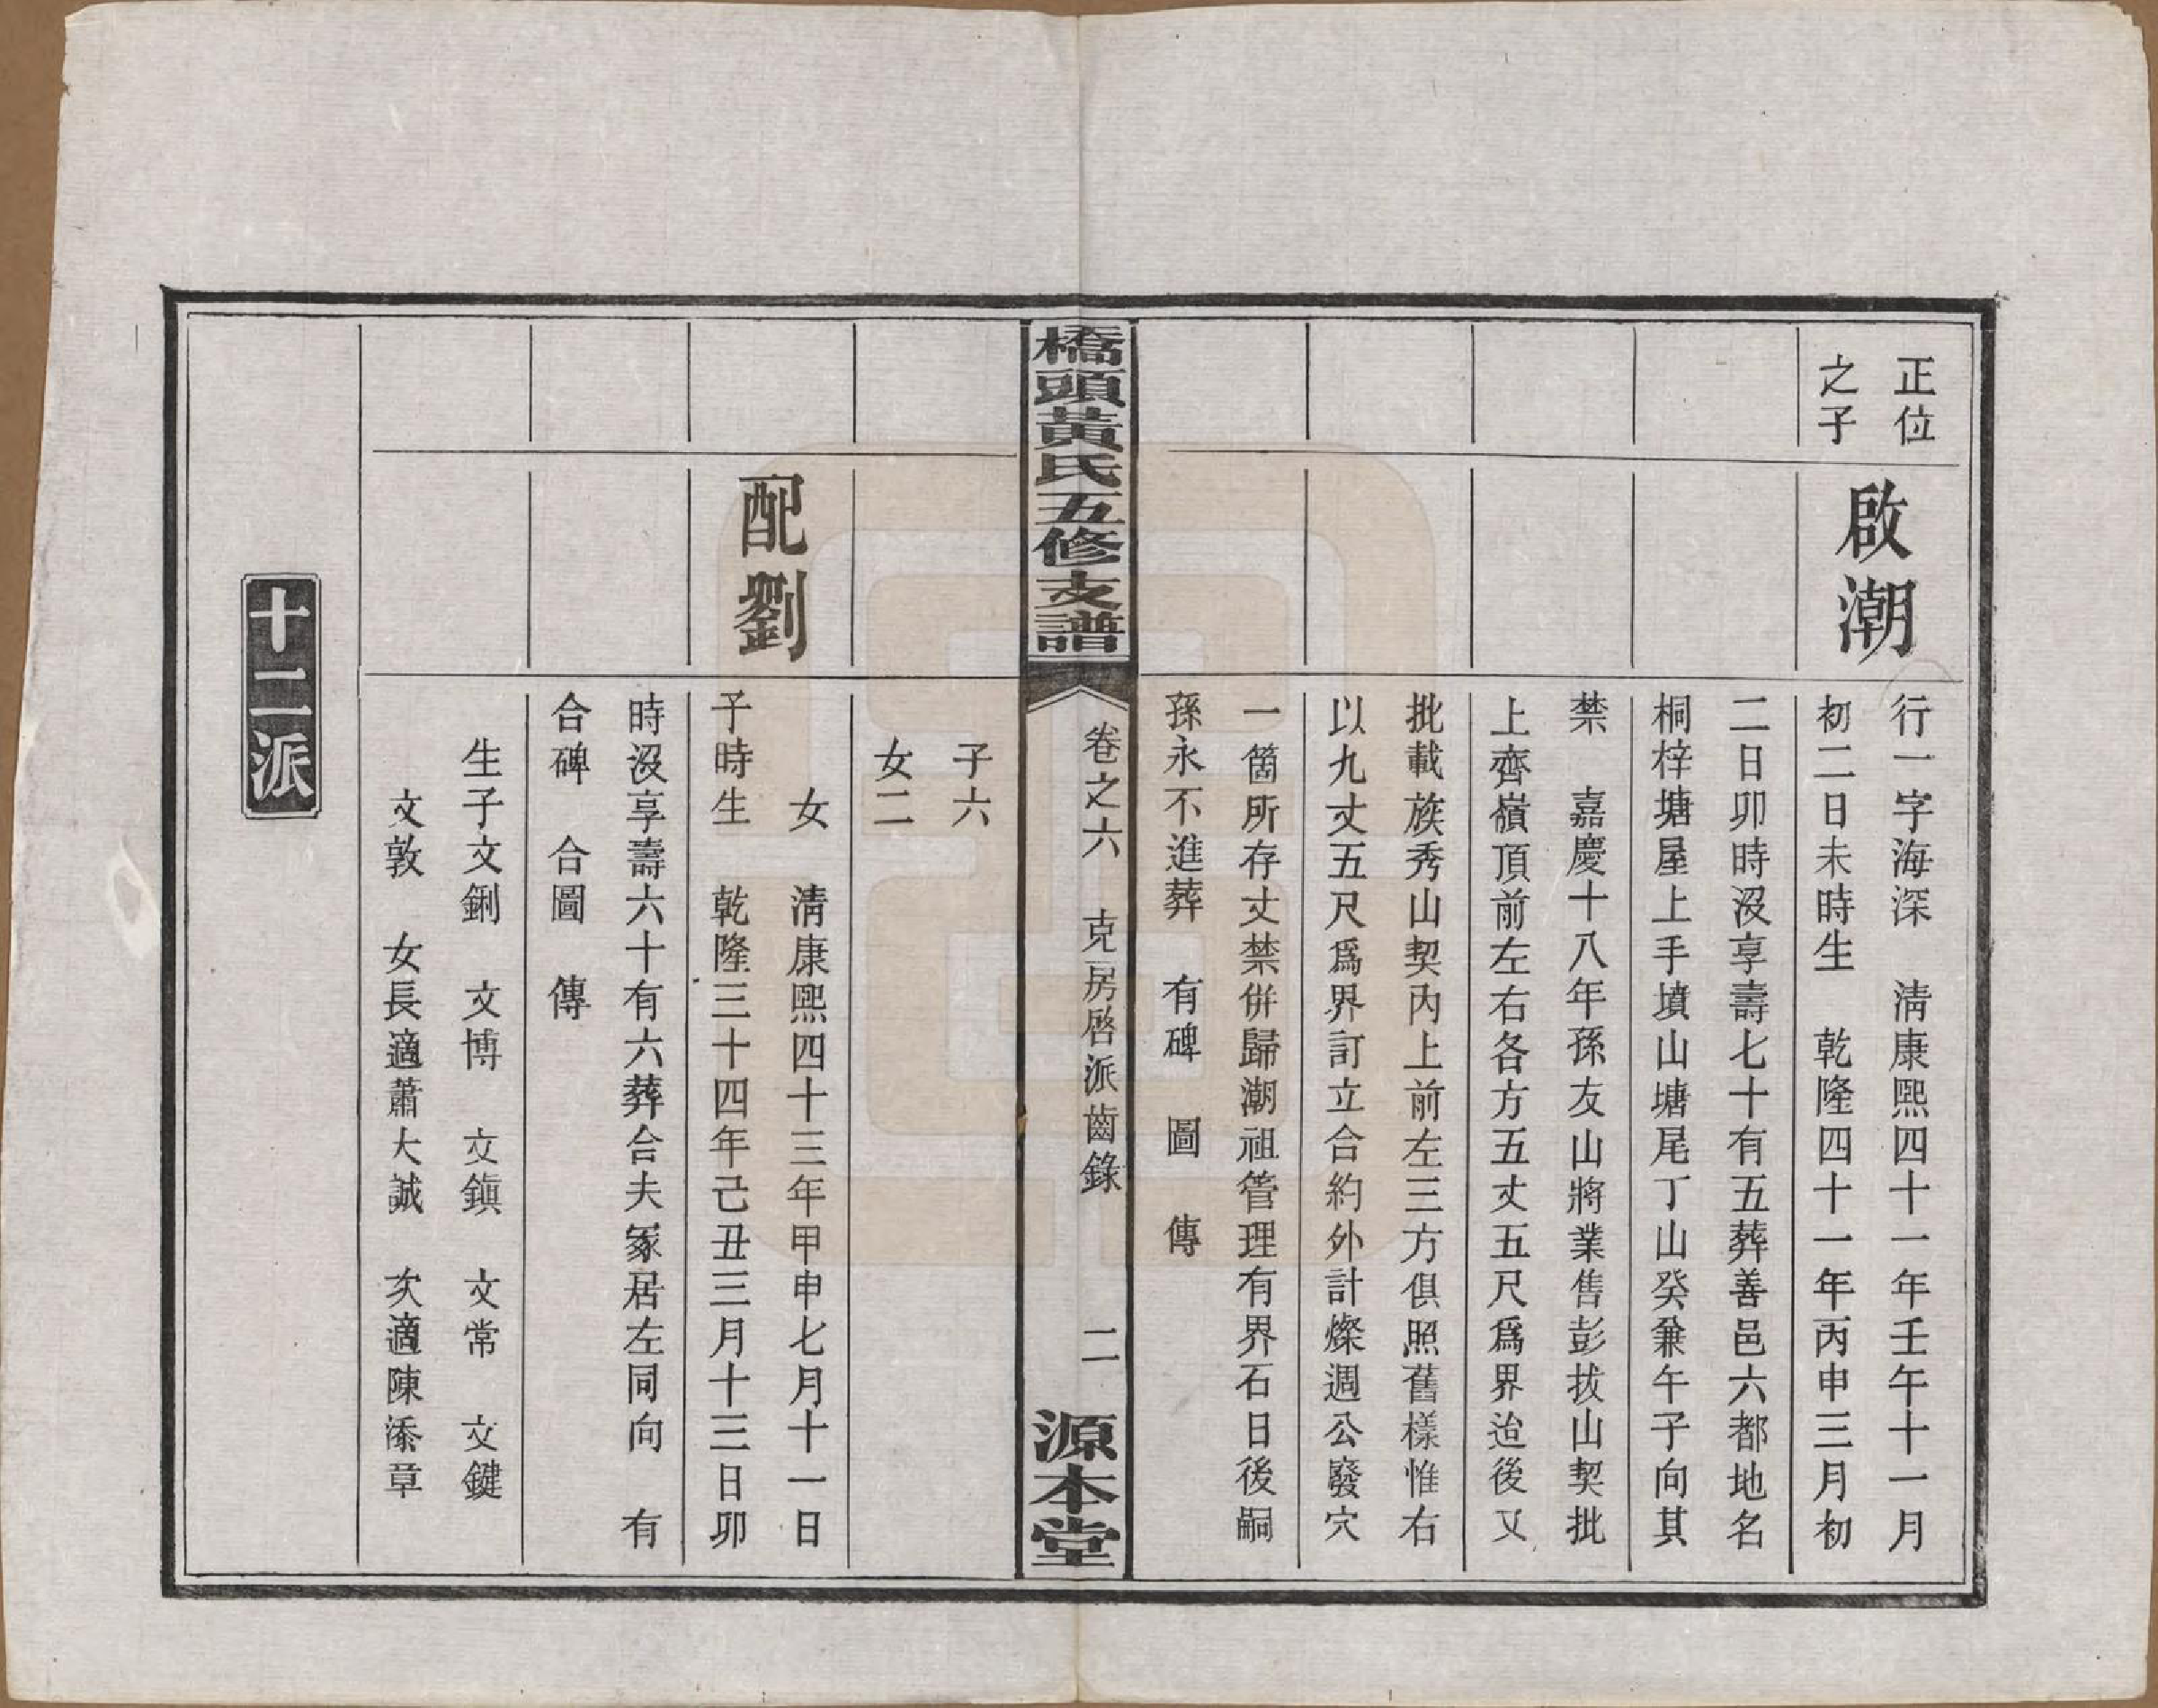 正位
之子
啟潮
行一字海深　清康熙四十一年壬午十一月
初二日未時生　乾隆四十一年丙申三月初
二日卯時沒享壽七十有五葬善邑六都地名
桐梓塘屋上手墳山塘尾丁山癸兼午子向其
禁　嘉慶十八年孫友山將業售彭拔山契批
上齊嶺頂前左右各方五丈五尺爲界迨後又
批載族秀山契內上前左三方俱照舊樣惟右
以九丈五尺爲界訂立合約外計燦週公廢穴
一箇所存丈禁併歸潮祖管理有界石日後嗣
孫永不進葬　有碑　圖　傳
橋頭黃氏五修支譜
卷之六　克房啓派齒錄　二
源本堂
子六
女二
配劉
女　清康熙四十三年甲申七月十一日
子時生　乾隆三十四年己丑三月十三日卯
時沒享壽六十有六葬合夫冢居左同向　有
合碑　合圖　傳
生子文鋓　文博　文鎭　文常　文鍵
文敦　女長適蕭大誠　次適陳添章
十二派